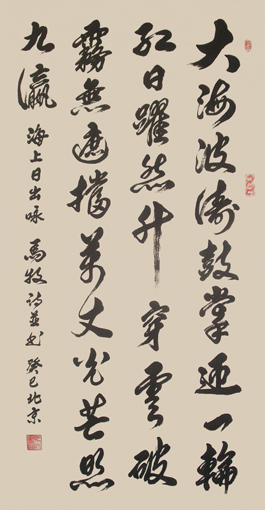 大海波涛鼓掌迎一輪
红日躍然升穿雲破
霧無遮擋萬丈光芒照
九瀛 海上日出咏 馬牧诗並书 癸巳北京